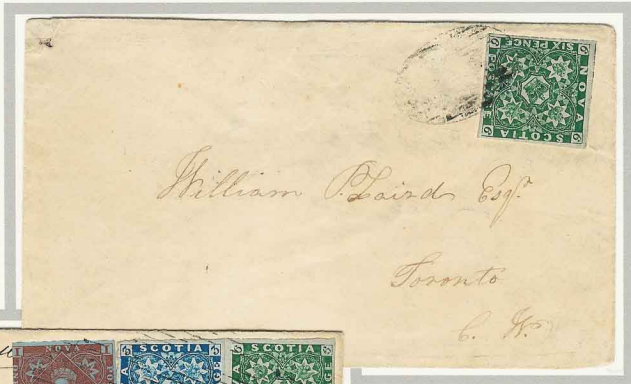 SIX PENCE
NOVA
SCOTIA
6
6
6
6
William P. Laird Esqr.
Toronto
C. W.
1
NOVA
1
SCOTIA
SCOTIA